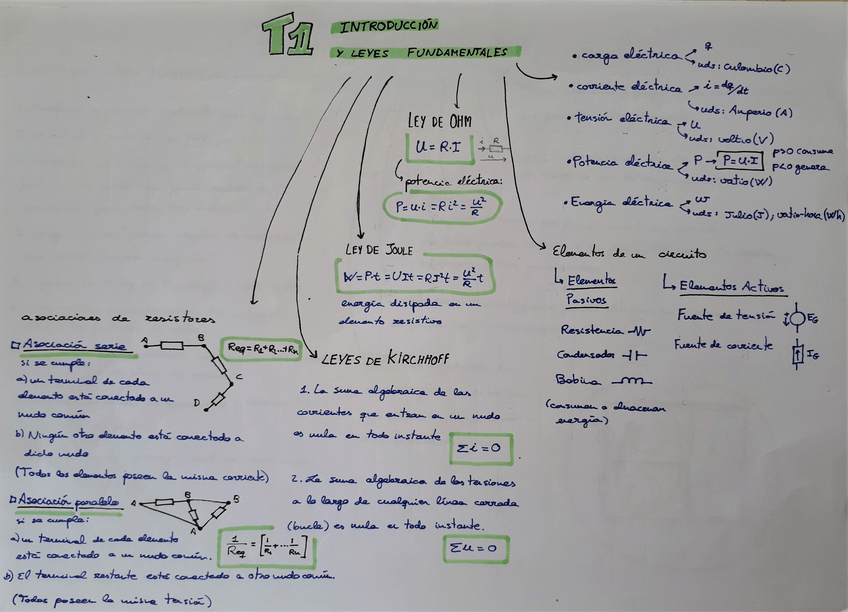 T1 INTRODUCCIÓN
Y LEYES FUNDAMENTALES
• carga eléctrica
q
uds: culombio (C)
• corriente eléctrica → i = dq/dt
uds: Amperio (A)
• tensión eléctrica
u
uds: voltio (V)
• Potencia eléctrica
P → P = u·I
p>0 consume
p<0 genera
uds: vatio (W)
• Energía eléctrica
w
uds: Julio (J), vatio-hora (Wh)
LEY DE OHM
U = R·I
i R
u
potencia eléctrica:
P = u·i = R i² = u²/R
LEY DE JOULE
W = P·t = UIt = RI²t = u²/R t
energía disipada en un
elemento resistivo
Elementos de un circuito
Elementos
Pasivos
Resistencia
Condensador
Bobina
(consumen o almacenan
energía)
Elementos Activos
Fuente de tensión
EG
Fuente de corriente
IG
asociaciones de resistores
Asociación serie
A B C D
Req = R1 + R2 ... + Rn
si se cumple:
a) un terminal de cada
elemento está conectado a un
nudo común
b) Ningún otro elemento está conectado a
dicho nudo
(Todos los elementos poseen la misma corriente)
Asociación paralelo
A B B
A
si se cumple:
a) un terminal de cada elemento
está conectado a un nudo común.
1/Req = [1/R1 + ... 1/Rn]
b) El terminal restante está conectado a otro nudo común.
(Todos poseen la misma tensión)
LEYES DE KIRCHHOFF
1. La suma algebraica de las
corrientes que entran en un nudo
es nula en todo instante
Σi = 0
2. La suma algebraica de las tensiones
a lo largo de cualquier línea cerrada
(bucle) es nula en todo instante.
Σu = 0